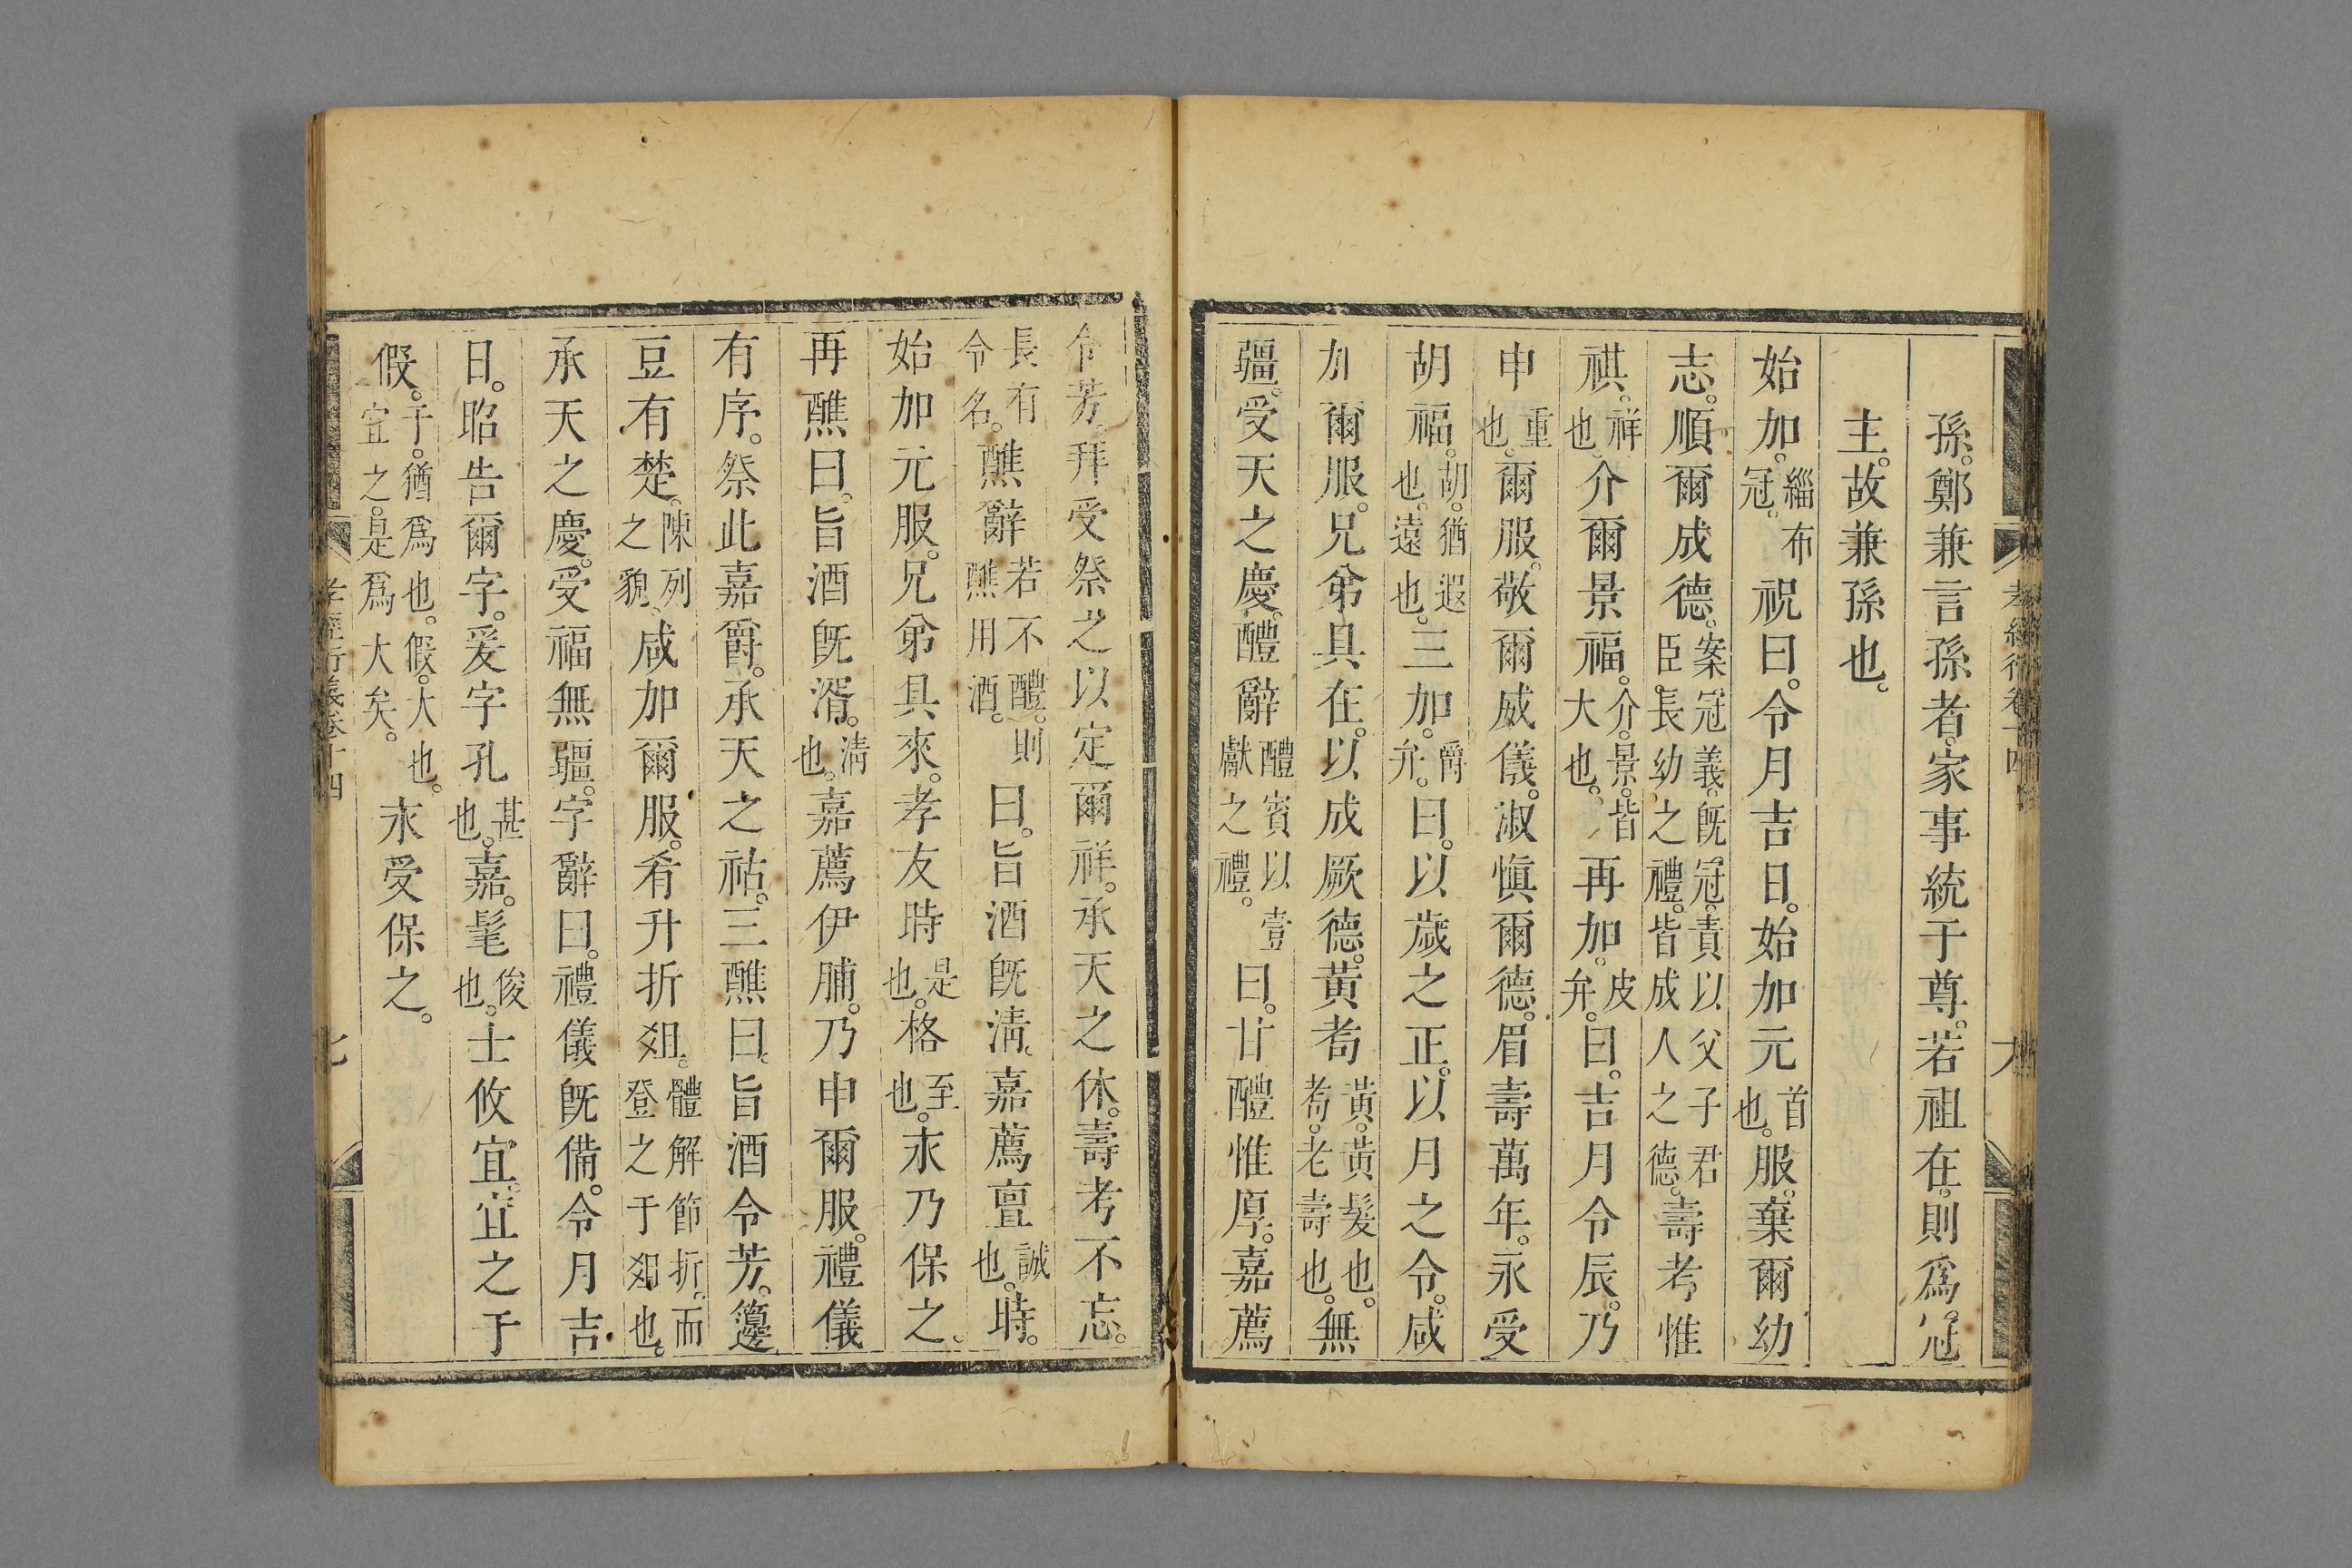 孫。鄭兼言孫者。家事統于尊。若祖在。則爲冠
主。故兼孫也。
始加。緇布冠。祝曰。令月吉日。始加元首也。服。棄爾幼
志。順爾成德。案冠義。旣冠。責以父子君臣。長幼之禮。皆成人之德。壽考惟
祺。祥也。介爾景福。介。景。皆大也。再加。皮弁。曰。吉月令辰。乃
申重也。爾服。敬爾威儀。淑愼爾德。眉壽萬年。永受
胡福。胡。猶遐也。遠也。三加。爵弁。曰。以歲之正。以月之令。咸
加爾服。兄弟具在。以成厥德。黃耇黃。黃髮也。耇。老壽也。無
疆。受天之慶。醴辭醴賓以壹獻之禮。曰。甘醴惟厚。嘉薦
令芳。拜受祭之。以定爾祥。承天之休。壽考不忘。
長有令名。醮辭若不醴。則醮用酒。曰。旨酒旣淸。嘉薦亶誠也。時。
始加元服。兄弟具來。孝友時是也。格至也。永乃保之。
再醮曰。旨酒旣湑。淸也。嘉薦伊脯。乃申爾服。禮儀
有序。祭此嘉爵。承天之祜。三醮曰。旨酒令芳。籩
豆有楚。陳列之貌。咸加爾服。肴升折俎。體解節折。而登之于俎也。
承天之慶。受福無疆。字辭曰。禮儀旣備。令月吉
日。昭告爾字。爰字孔甚也。嘉。髦俊也。士攸宜。宜之于
假。于。猶爲也。假。大也。宜之。是爲大矣。永受保之。
孝經衍義卷十四